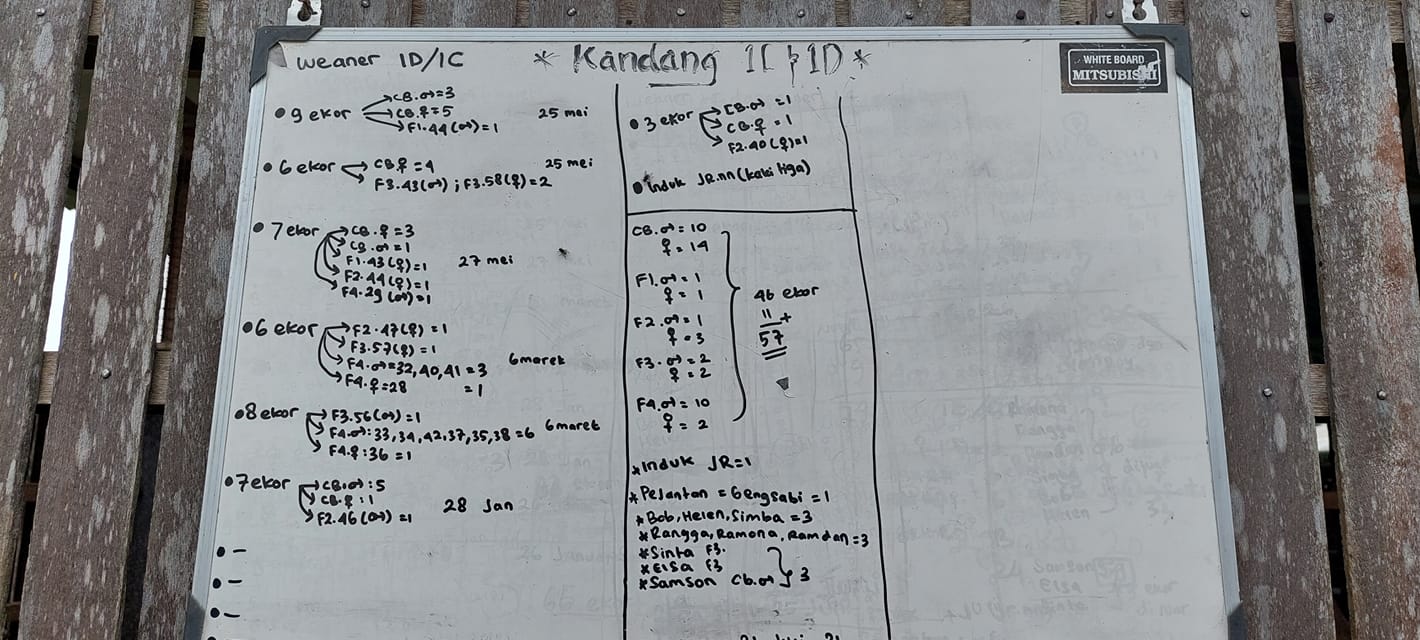 weaner 1D/1C
* Kandang 1C & 1D *
WHITE BOARD
MITSUBISHI
• 9 ekor → CB.♂=3
→ CB.♀=5
→ F1.44(♂)=1
25 mei
• 6 ekor → CB♀=4
→ F3.43(♂) ; F3.58(♀)=2
25 mei
• 7 ekor → CB.♀=3
→ CB.♂=1
→ F1.43(♀)=1
→ F2.44(♀)=1
→ F4.29(♂)=1
27 mei
• 6 ekor → F2.47(♀)=1
→ F3.57(♀)=1
→ F4.♂=32,40,41=3
→ F4.♀=28 =1
6 maret
• 8 ekor → F3.56(♂)=1
→ F4.♂:33,34,42,37,35,38=6
→ F4.♀:36=1
6 maret
• 7 ekor → CB.♂:5
→ CB.♀:1
→ F2.46(♂)=1
28 Jan
• –
• –
• –
• 3 ekor → CB.♂=1
→ CB.♀=1
→ F2.40(♀)=1
• Induk JR.nn (kaki tiga)
CB.♂=10
♀=14
F1.♂=1
♀=1
F2.♂=1
♀=3
F3.♂=2
♀=2
F4.♂=10
♀=2
46 ekor
11 +
57
* Induk JR=1
* Pejantan = Gengsabi = 1
* Bob, Helen, Simba = 3
* Rangga, Ramona, Ramdan = 3
* Sinta F3.
* Elsa F3
* Samson Cb.♂
3